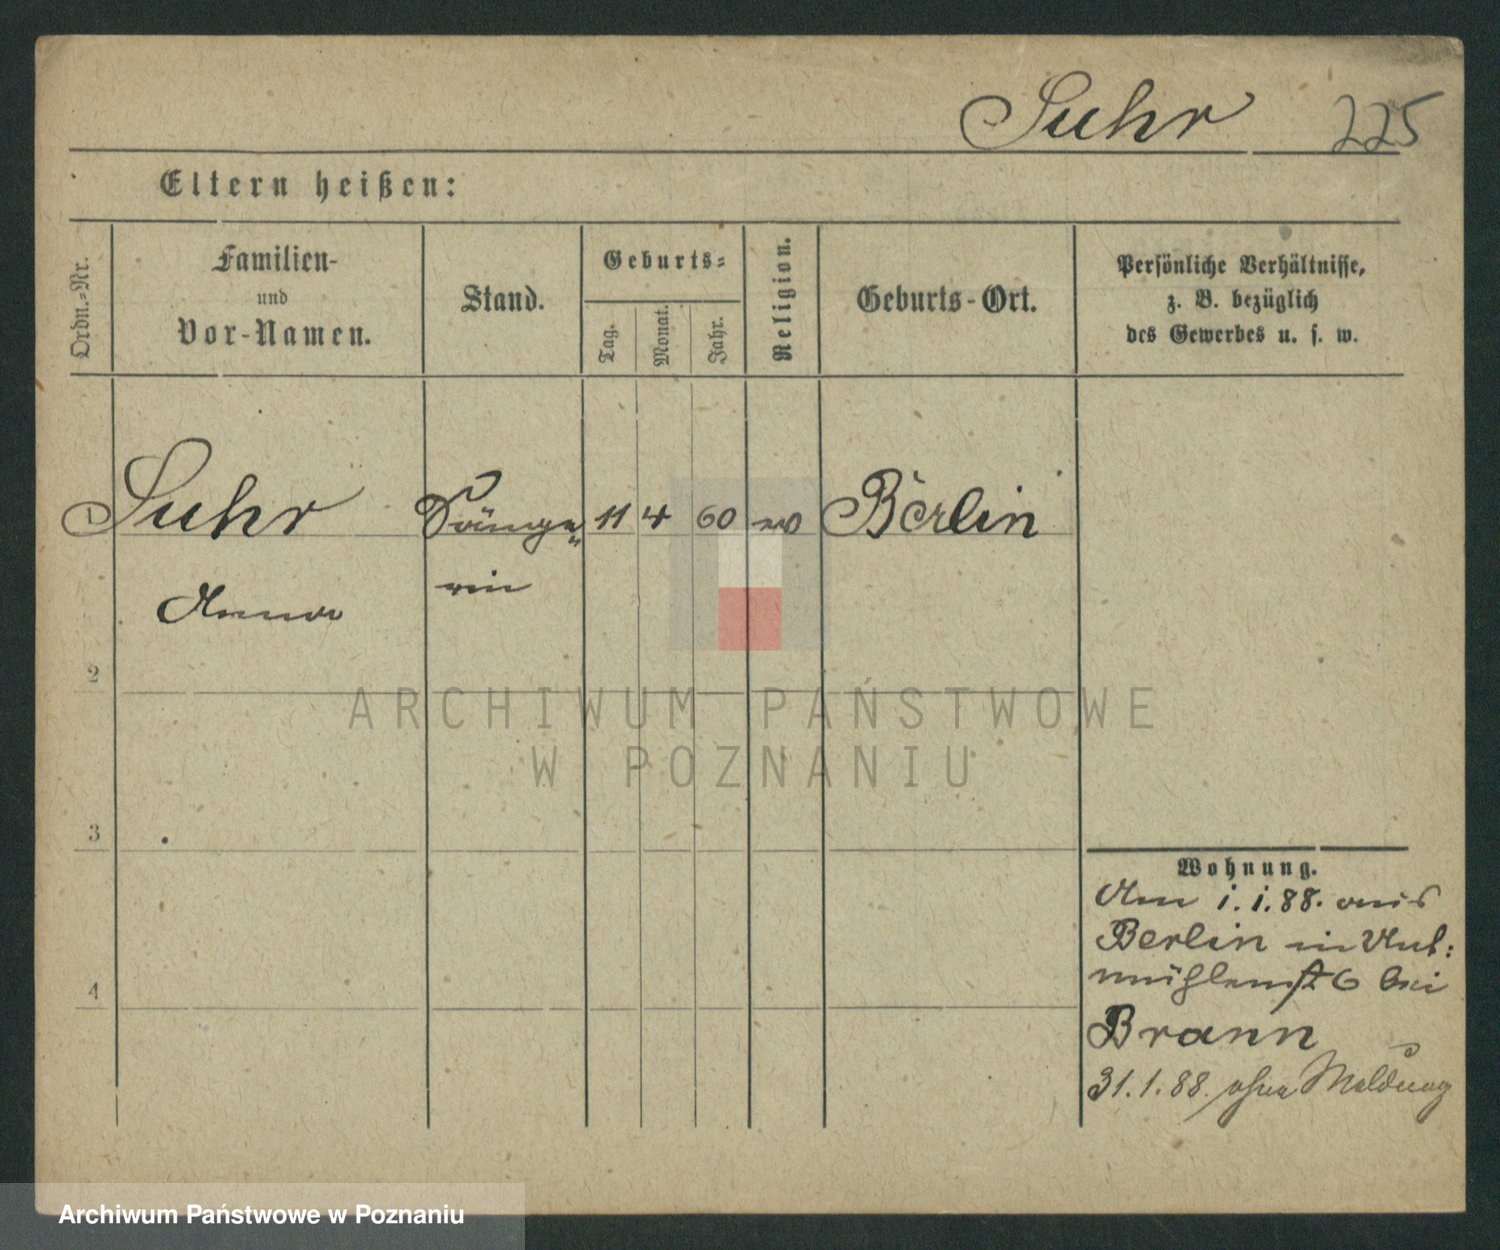 Suhr 225
Eltern heißen:
Ordn.-Nr.
Familien-
und
Vor-Namen.
Stand.
Geburts-
Tag.
Monat.
Jahr.
Religion.
Geburts-Ort.
Persönliche Verhältnisse,
z. B. bezüglich
des Gewerbes u. s. w.
Suhr Sänge„ 11 4 60 ev Berlin
rin
Anna
2
3
4
Wohnung.
Am 1.1.88. aus
Berlin in
mühlenst 6 bei
Brann
31.1.88. ohne Meldung
ARCHIWUM PAŃSTWOWE
W POZNANIU
Archiwum Państwowe w Poznaniu